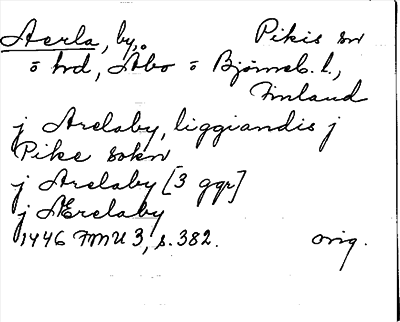 Aerla, by, Pikis sn
o hrd, Åbo o Björneb. l.,
Finland
j Arelaby, liggiandis j
Pike sokn
j Arelaby [3 ggr]
j Ærelaby
1446 FMU 3, s. 382. orig.